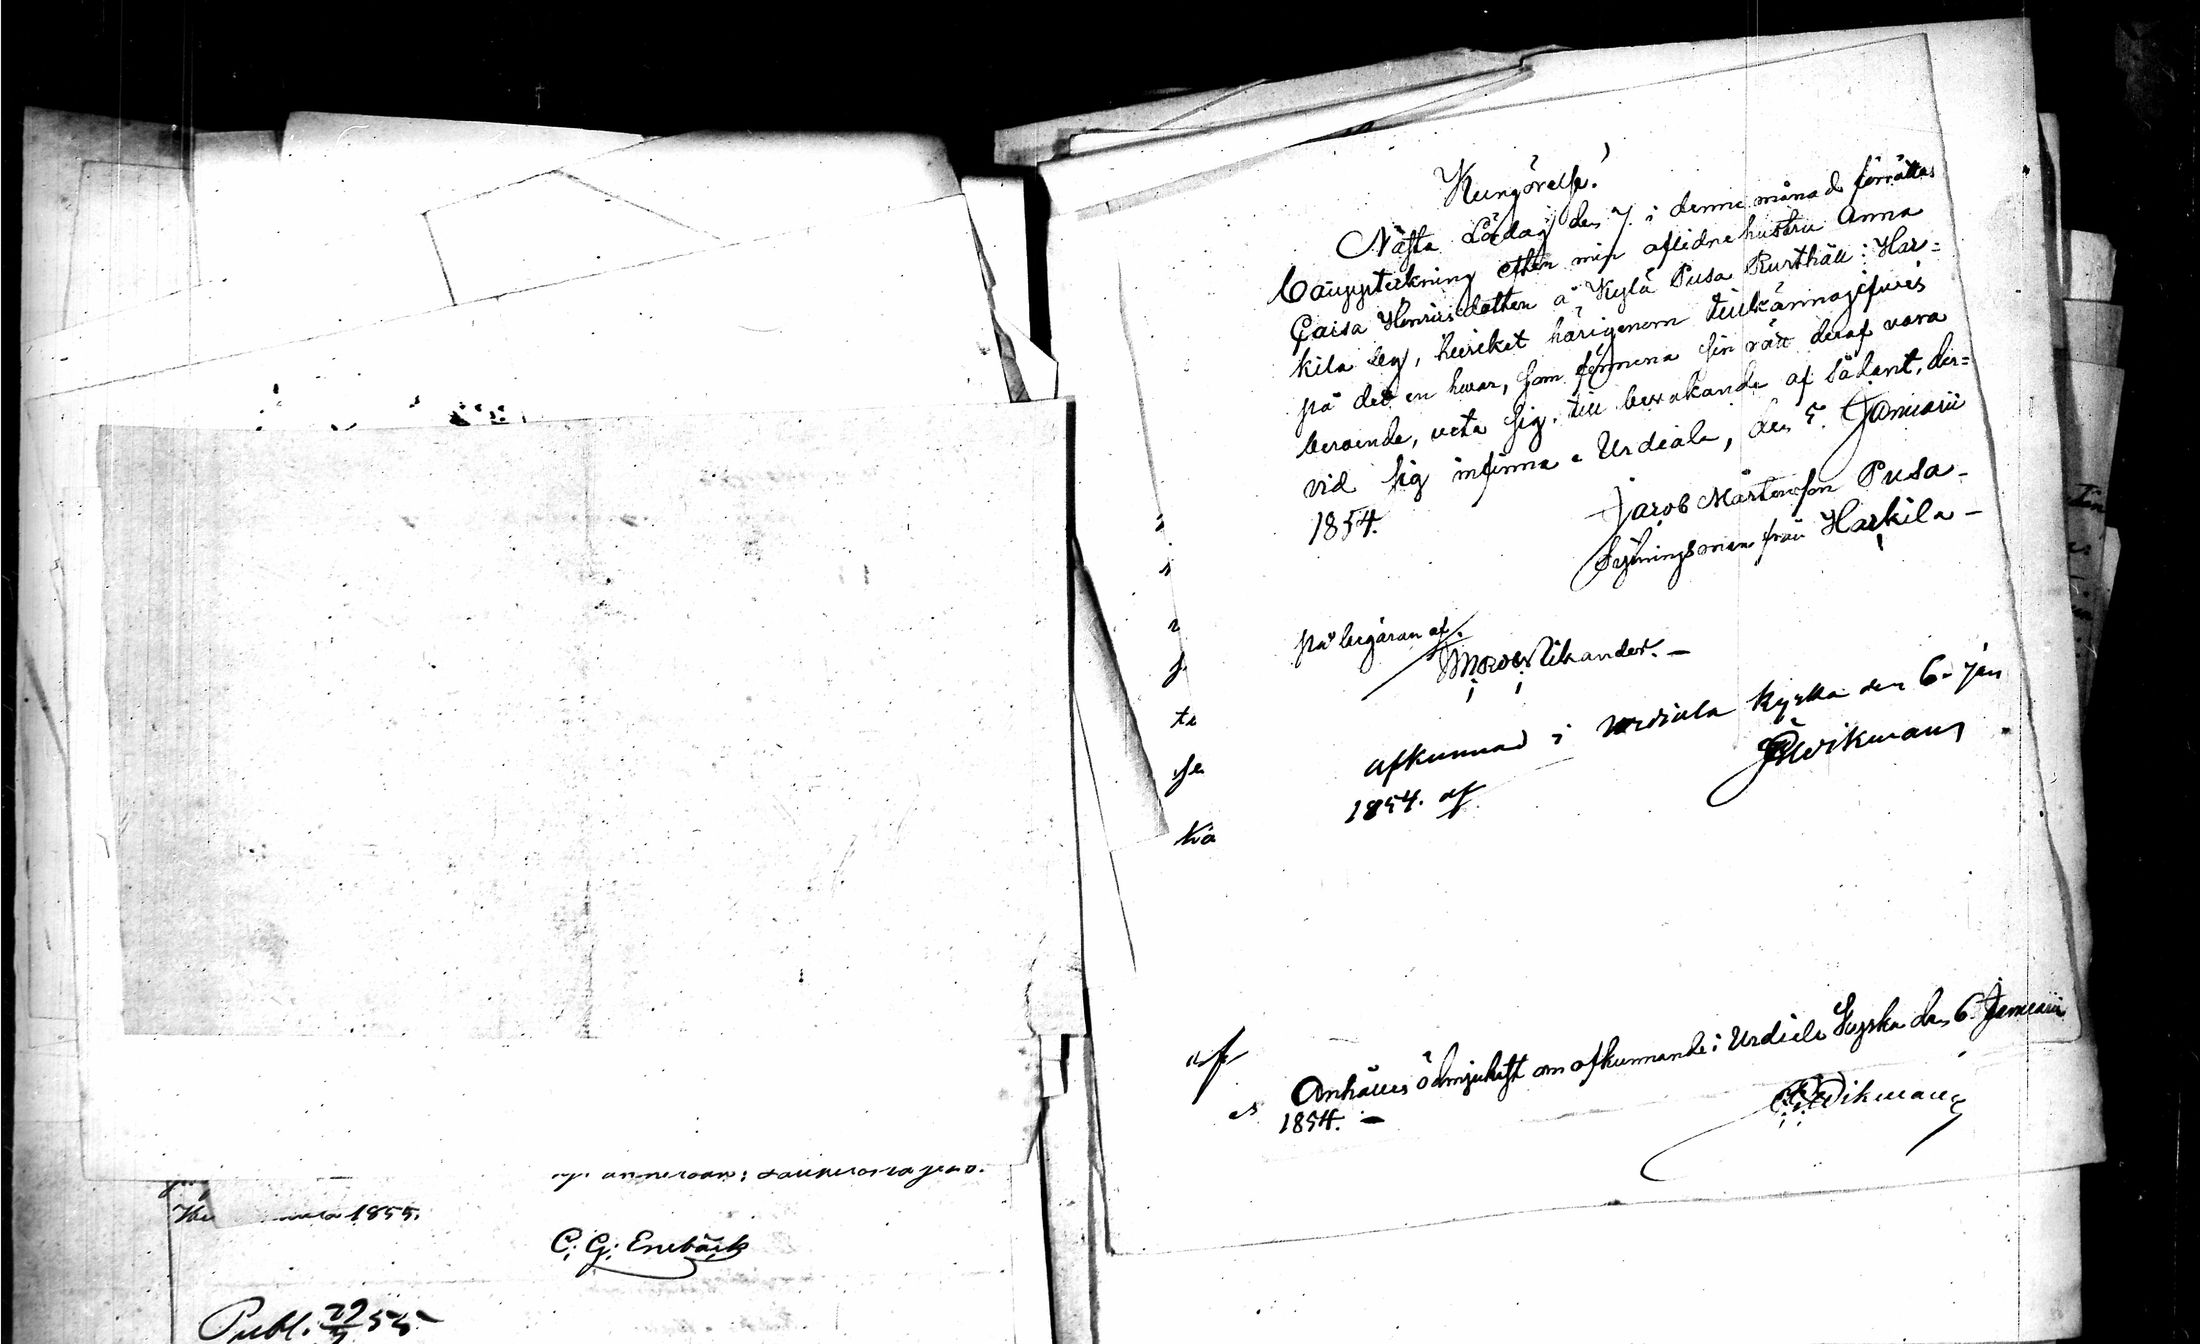 Kungörelse!
Nästa Lördag den 7. i denne månad förrättas
Bouppteckning efter min aflidne hustru Anna
Caisa Henricsdotter å Kylä Pusa Rusthåll i Har=
kila by, hvilket härigenom tillkännagifves
på det en hvar, som förmena sin rätt deraf vara
beroende, veta sig till bevakande af sådant, der=
vid sig infinna. Urdiala, den 5. Januarii
1854.
Jacob Mårtensson Pusa
Sytningsman från Harkila
på begäran af
Likander.
afkunnad i Urdiala kyrka den 6 Jan
1854. af
Wikman
Anhålles ödmjukast om afkunnande i Urdiala Kyrka den 6 Januarii
1854.
Wikman
af
1855.
C. G. Enebäck
Publ. 55